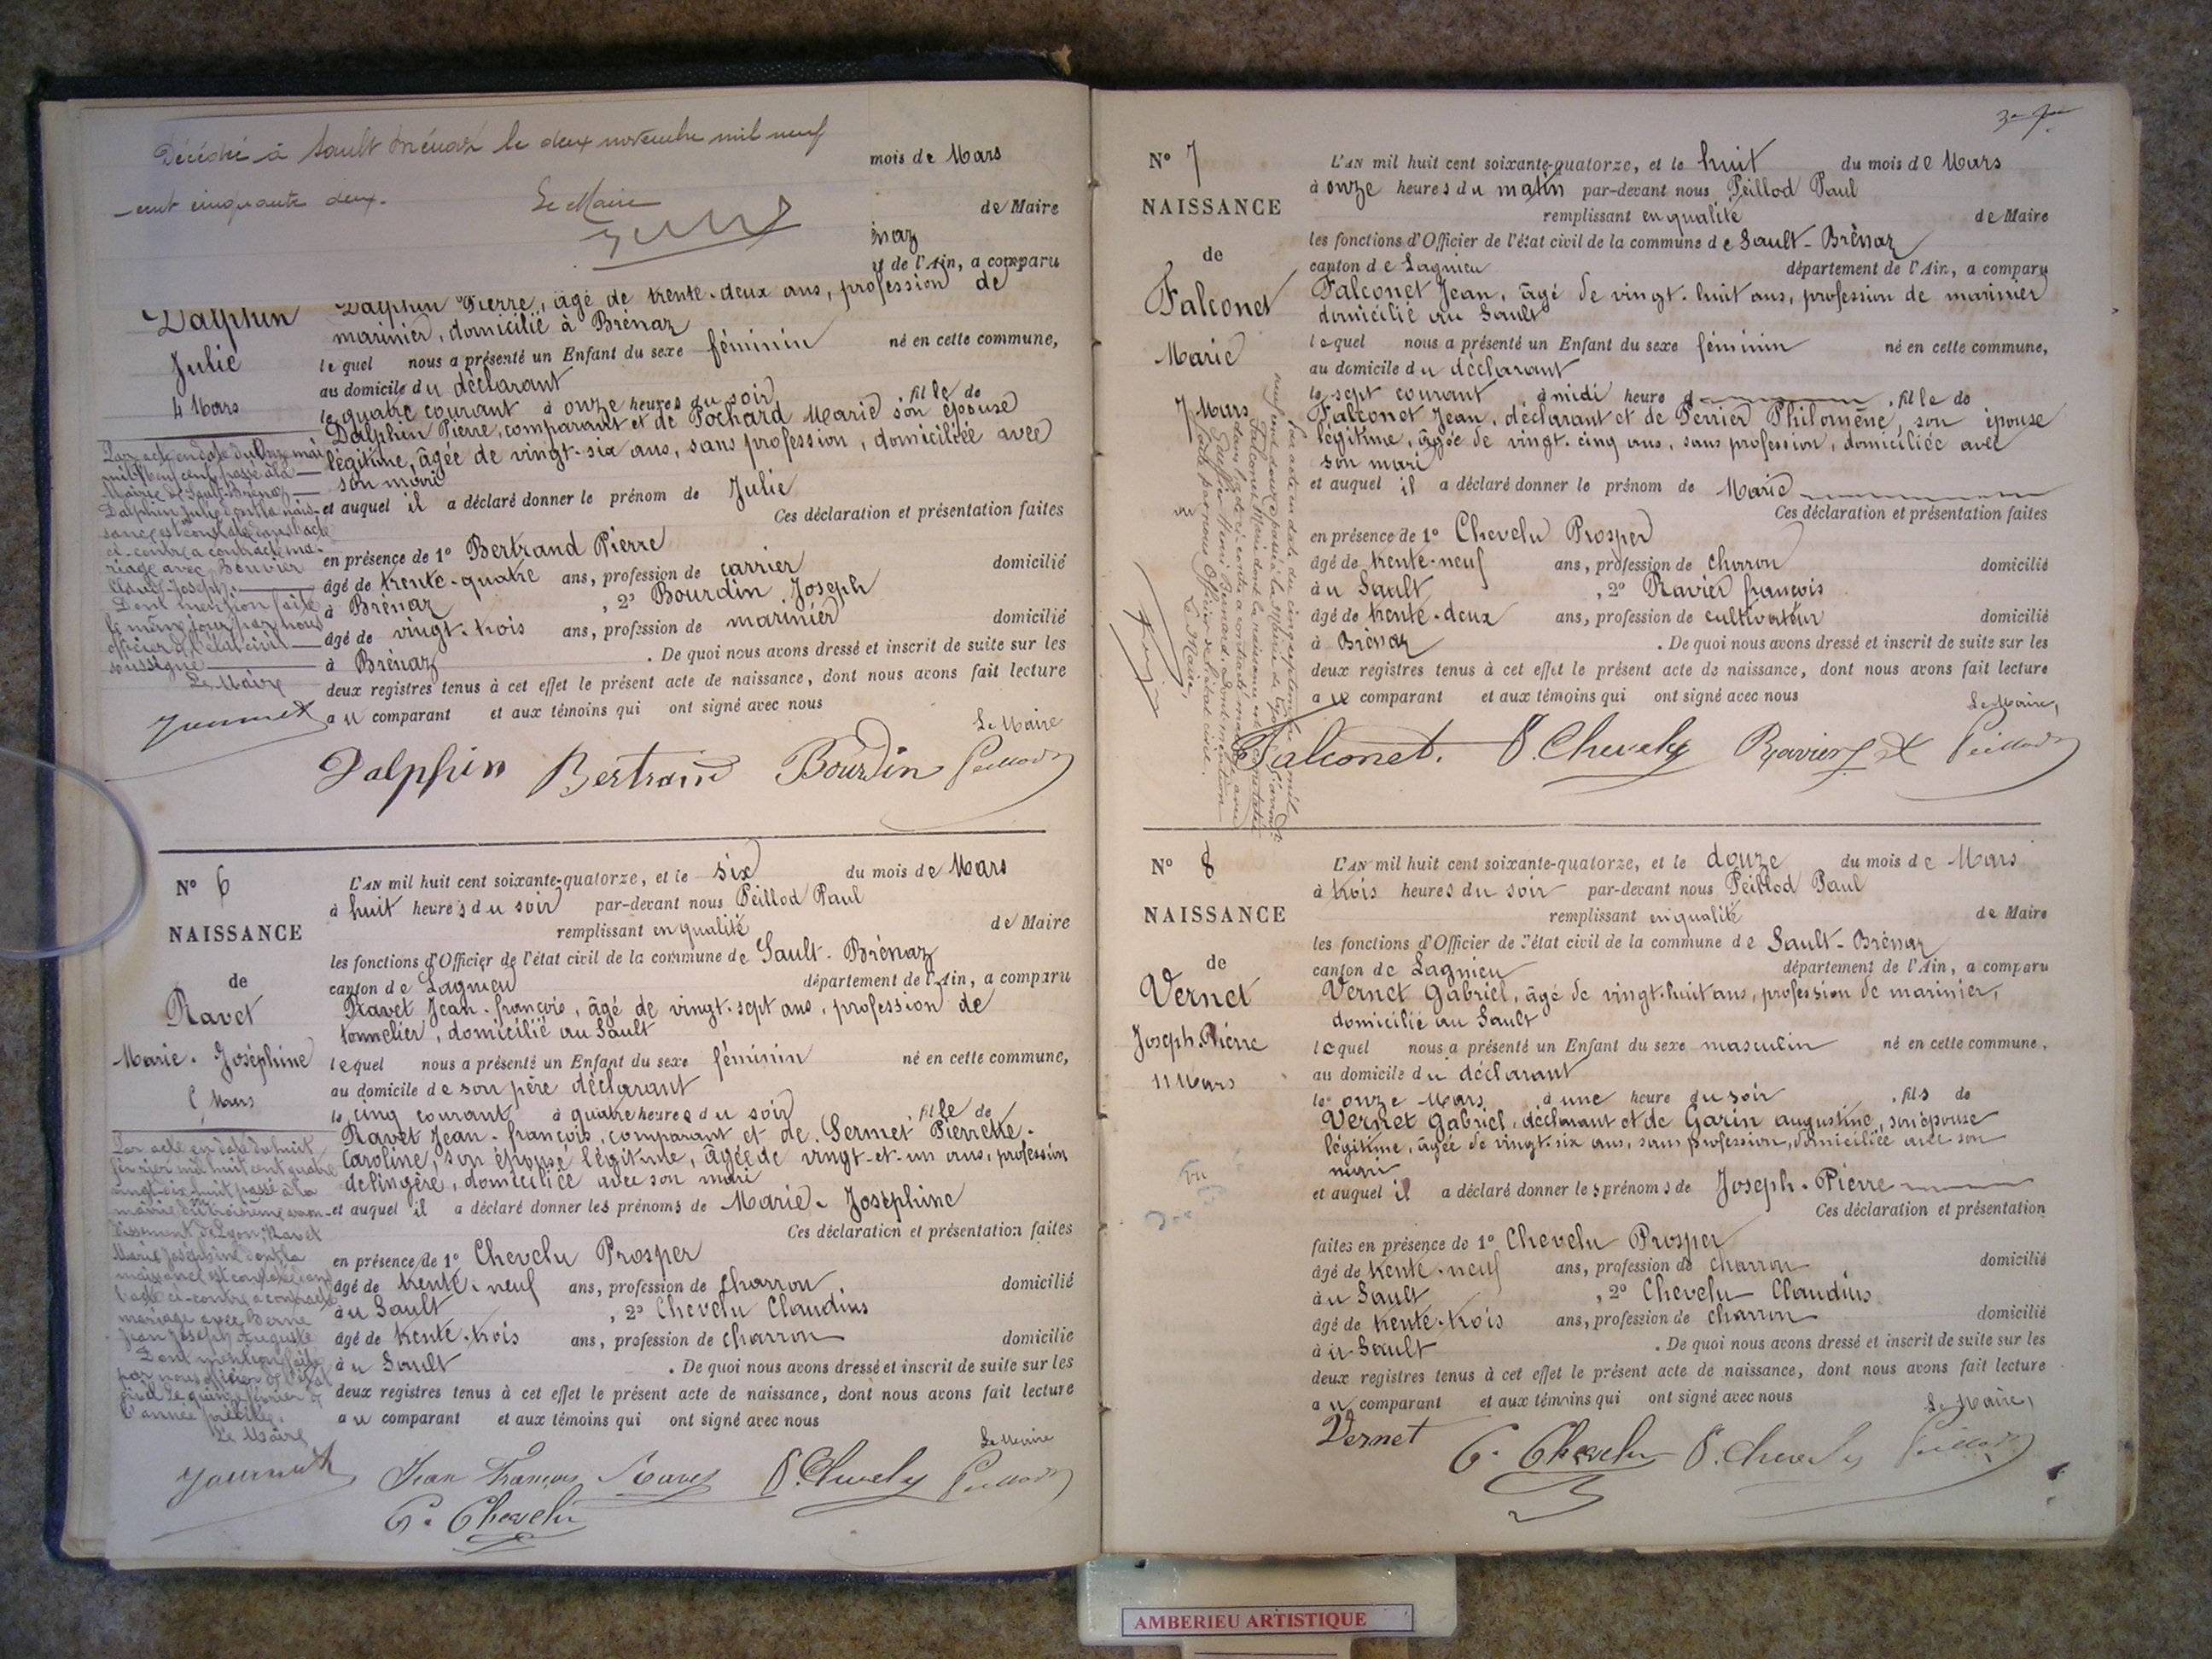 Décédée à Sault Brénaz le deux novembre mil neuf
cent cinquante deux.
Le Maire
mois de Mars
de Maire
naz
de l'Ain, a comparu
Dalphin
Julie
4 Mars
Dalphin Pierre, âgé de trente-deux ans, profession de
marinier, domicilié à Brénaz
lequel nous a présenté un Enfant du sexe féminin né en cette commune,
au domicile du déclarant
le quatre courant à onze heures du soir, fille de
Dalphin Pierre, comparant et de Pochard Marie son épouse
légitime, âgée de vingt-six ans, sans profession, domiciliée avec
son mari
et auquel il a déclaré donner le prénom de Julie
Ces déclaration et présentation faites
en présence de 1º Bertrand Pierre
âgé de trente-quatre ans, profession de carrier domicilié
à Brénaz, 2º Bourdin Joseph
âgé de vingt-trois ans, profession de marinier domicilié
à Brénaz. De quoi nous avons dressé et inscrit de suite sur les
deux registres tenus à cet effet le présent acte de naissance, dont nous avons fait lecture
au comparant et aux témoins qui ont signé avec nous
Le Maire
Dalphin Bertrand Bourdin Peillod
Par acte en date du onze mai
mil neuf cent passé à la
Mairie de Sault-Brénaz
Dalphin Julie dont la nais-
sance est constatée dans l'acte
ci-contre a contracté ma-
riage avec Bouvier
Claude Joseph.
Dont mention faite
le même jour par nous
officier de l'état civil
soussigné
Le Maire
Nº 6
NAISSANCE
de
Ravet
Marie-Joséphine
Mars
L'AN mil huit cent soixante-quatorze, et le six du mois de Mars
à huit heures du soir par-devant nous Peillod Paul
remplissant en qualité de Maire
les fonctions d'Officier de l'état civil de la commune de Sault-Brénaz
canton de Lagnieu département de l'Ain, a comparu
Ravet Jean-françois, âgé de vingt-sept ans, profession de
tonnelier, domicilié au Sault
lequel nous a présenté un Enfant du sexe féminin né en cette commune,
au domicile de son père déclarant
le cinq courant à quatre heures du soir, fille de
Ravet Jean-françois, comparant et de Sermet Pierrette-
Caroline, son épouse légitime, âgée de vingt-et-un ans, profession
de lingère, domiciliée avec son mari
et auquel il a déclaré donner les prénoms de Marie-Joséphine
Ces déclaration et présentation faites
en présence de 1º Chevelu Prosper
âgé de trente-neuf ans, profession de charron domicilié
au Sault, 2º Chevelu Claudius
âgé de trente-trois ans, profession de charron domicilié
au Sault. De quoi nous avons dressé et inscrit de suite sur les
deux registres tenus à cet effet le présent acte de naissance, dont nous avons fait lecture
au comparant et aux témoins qui ont signé avec nous
Le Maire
Jean François Ravet P. Chevelu Peillod
C. Chevelu
Par acte en date du huit
février mil huit cent quatre
vingt-dix-huit passé à la
mairie du troisième arron-
dissement de Lyon, Ravet
Marie Joséphine dont la
naissance est constatée dans
l'acte ci-contre a contracté
mariage avec Berne
Jean Joseph Auguste
Dont mention faite
par nous officier de l'état
civil le quinze février de
l'année précitée.
Le Maire
Nº 7
NAISSANCE
de
Falconet
Marie
7 Mars
vu
L'AN mil huit cent soixante-quatorze, et le huit du mois de Mars
à onze heures du matin par-devant nous Peillod Paul
remplissant en qualité de Maire
les fonctions d'Officier de l'état civil de la commune de Sault-Brénaz
canton de Lagnieu département de l'Ain, a comparu
Falconet Jean, âgé de vingt-huit ans, profession de marinier
domicilié au Sault
lequel nous a présenté un Enfant du sexe féminin né en cette commune,
au domicile du déclarant
le sept courant à midi heure d, fille de
Falconet Jean, déclarant et de Perrier Philomène, son épouse
légitime, âgée de vingt-cinq ans, sans profession, domiciliée avec
son mari
et auquel il a déclaré donner le prénom de Marie
Ces déclaration et présentation faites
en présence de 1º Chevelu Prosper
âgé de trente-neuf ans, profession de charron domicilié
au Sault, 2º Ravier françois
âgé de trente-deux ans, profession de cultivateur domicilié
à Brénaz. De quoi nous avons dressé et inscrit de suite sur les
deux registres tenus à cet effet le présent acte de naissance, dont nous avons fait lecture
au comparant et aux témoins qui ont signé avec nous
Le Maire,
Falconet. P. Chevelu Ravier Peillod
Par acte en date du cinq septembre mil
neuf cent douze passé à la Mairie de Lyon
Falconet Marie dont la naissance est constatée
dans l'acte ci-contre a contracté mariage avec
Henri Bernard. Dont mention
faite par nous Officier de l'état civil.
Le Maire,
Nº 8
NAISSANCE
de
Vernet
Joseph-Pierre
11 Mars
vu
L'AN mil huit cent soixante-quatorze, et le douze du mois de Mars
à trois heures du soir par-devant nous Peillod Paul
remplissant en qualité de Maire
les fonctions d'Officier de l'état civil de la commune de Sault-Brénaz
canton de Lagnieu département de l'Ain, a comparu
Vernet Gabriel, âgé de vingt-huit ans, profession de marinier,
domicilié au Sault
lequel nous a présenté un Enfant du sexe masculin né en cette commune,
au domicile du déclarant
le onze Mars à une heure du soir, fils de
Vernet Gabriel, déclarant et de Garin augustine, son épouse
légitime, âgée de vingt-six ans, sans profession, domiciliée avec son
mari
et auquel il a déclaré donner les prénoms de Joseph-Pierre
Ces déclaration et présentation
faites en présence de 1º Chevelu Prosper
âgé de trente-neuf ans, profession de charron domicilié
au Sault, 2º Chevelu Claudius
âgé de trente-trois ans, profession de charron domicilié
au Sault. De quoi nous avons dressé et inscrit de suite sur les
deux registres tenus à cet effet le présent acte de naissance, dont nous avons fait lecture
au comparant et aux témoins qui ont signé avec nous
Le Maire,
Vernet C. Chevelu P. Chevelu Peillod
AMBERIEU ARTISTIQUE